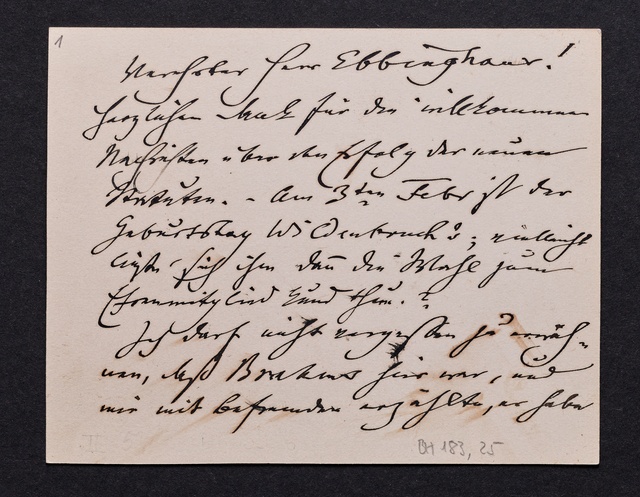 1
Verehrter Herr Ebbinghaus!
Herzlichen Dank für die willkommenen
Nachrichten über den Erfolg der neuen
Statuten. - Am 3ten Febr ist der
Geburtstag Wildenbruch's; vielleicht
ließe sich ihm dann die Wahl zum
Ehrenmitglied kund thun.?
Ich darf nicht vergessen zu erwäh-
nen, daß Brahms hier war, und
mir mit Befremden erzählte, er habe
DH 183, 25